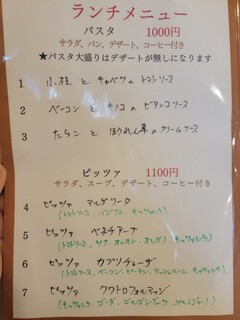 ランチメニュー
パスタ 1000円
サラダ、パン、デザート、コーヒー付き
★パスタ大盛りはデザートが無しになります
1 小柱 と キャベツ の トマトソース
2 ベーコン と キノコ の ビアンコソース
3 たらこ と ほうれん草 の クリームソース
ピッツァ 1100円
サラダ、スープ、デザート、コーヒー付き
4 ピッツァ マルゲリータ
(トマトソース、バジリコ、モッツァレラ)
5 ピッツァ ベネチアーナ
(トマトソース、ツナ、オニオン、オレガノ、モッツァレラ)
6 ピッツァ カプリチョーザ
(トマトソース、ベーコン、ピーマン、マッシュルーム、モッツァレラ)
7 ピッツァ クワトロフォルマッジ
(モッツァレラ、ゴーダ、ゴルゴンゾーラ、パルミジャーノ)